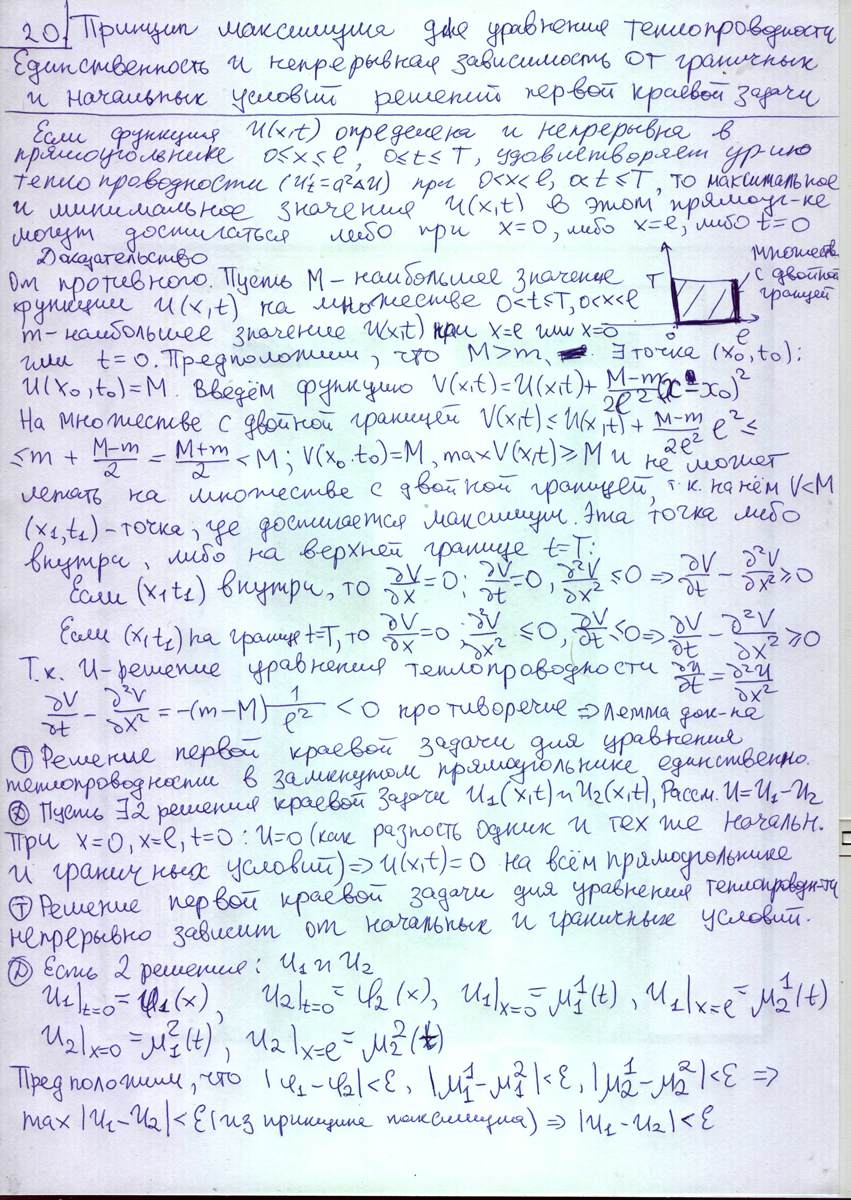 20. Принцип максимума для уравнения теплопроводности
Единственность и непрерывная зависимость от граничных
и начальных условий решений первой краевой задачи
Если функция U(x,t) определена и непрерывна в
прямоугольнике 0≤x≤l, 0≤t≤T, удовлетворяет ур-ию
теплопроводности (U't=a²ΔU) при 0<x<l, 0<t≤T, то максимальное
и минимальное значения U(x,t) в этом прямоуг-ке
могут достигаться либо при x=0, либо x=l, либо t=0
Доказательство
От противного. Пусть M – наибольшее значение
функции U(x,t) на множестве 0<t≤T, 0<x<l
m – наибольшее значение U(x,t) при x=l или x=0
или t=0. Предположим, что M>m, ∃ точка (x₀,t₀):
T
0
l
множеств.
с двойной
границей
U(x₀,t₀)=M. Введём функцию V(x,t)=U(x,t)+ (M-m)/(2l²) (x-x₀)²
На множестве с двойной границей V(x,t)≤U(x,t)+ (M-m)/(2l²) l² ≤
≤m + (M-m)/2 = (M+m)/2 <M; V(x₀,t₀)=M, max V(x,t)≥M и не может
лежать на множестве с двойной границей, т.к. на нём V<M
(x₁,t₁) – точка, где достигается максимум. Эта точка либо
внутри, либо на верхней границе t=T:
Если (x₁t₁) внутри, то ∂V/∂x=0; ∂V/∂t=0, ∂²V/∂x² ≤0 ⇒ ∂V/∂t - ∂²V/∂x² ≥0
Если (x,t₁) на границе t=T, то ∂V/∂x=0; ∂²V/∂x² ≤0, ∂V/∂t ≤0 ⇒ ∂V/∂t - ∂²V/∂x² ≥0
Т.к. U-решение уравнения теплопроводности ∂U/∂t = ∂²U/∂x²
∂V/∂t - ∂²V/∂x² = -(m-M) 1/l² <0 противоречие ⇒ Лемма док-на
Ⓣ Решение первой краевой задачи для уравнения
теплопроводности в замкнутом прямоугольнике единственно.
Ⓓ Пусть ∃ 2 решения краевой задачи U₁(x,t) и U₂(x,t), Рассм. U=U₁-U₂
При x=0, x=l, t=0: U=0 (как разность одних и тех же начальн.
и граничных условий) ⇒ U(x,t)=0 на всём прямоугольнике
Ⓣ Решение первой краевой задачи для уравнения теплопроводн-ти
непрерывно зависит от начальных и граничных условий.
Ⓓ Есть 2 решения: U₁ и U₂
U₁|t=0=φ₁(x), U₂|t=0=φ₂(x), U₁|x=0=μ₁¹(t), U₁|x=l=μ₂¹(t)
U₂|x=0=μ₁²(t), U₂|x=l=μ₂²(t)
Предположим, что |φ₁-φ₂|<ε, |μ₁¹-μ₁²|<ε, |μ₂¹-μ₂²|<ε ⇒
max|U₁-U₂|<ε (из принципа максимума) ⇒ |U₁-U₂|<ε